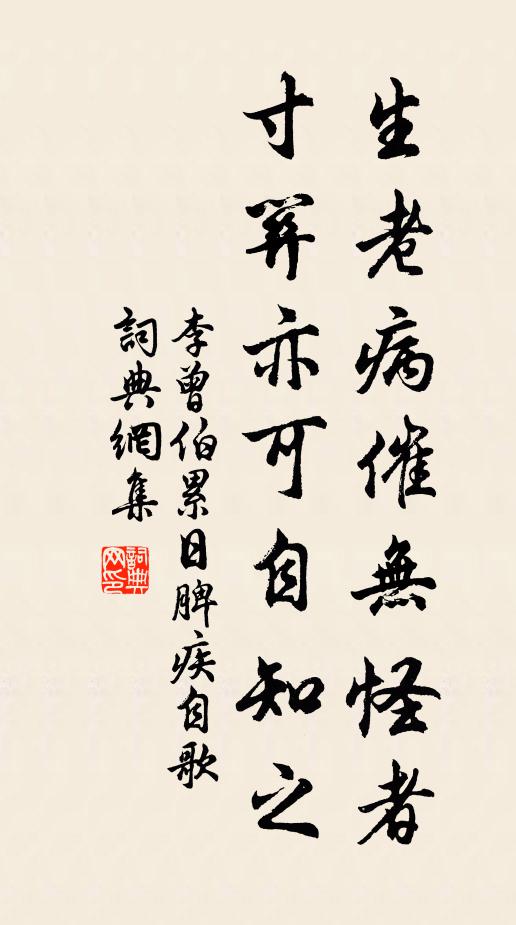 生老病催無怪者
寸亦可自知之
李曾伯累日脾疾自歌
詞典網集
詞典
网印